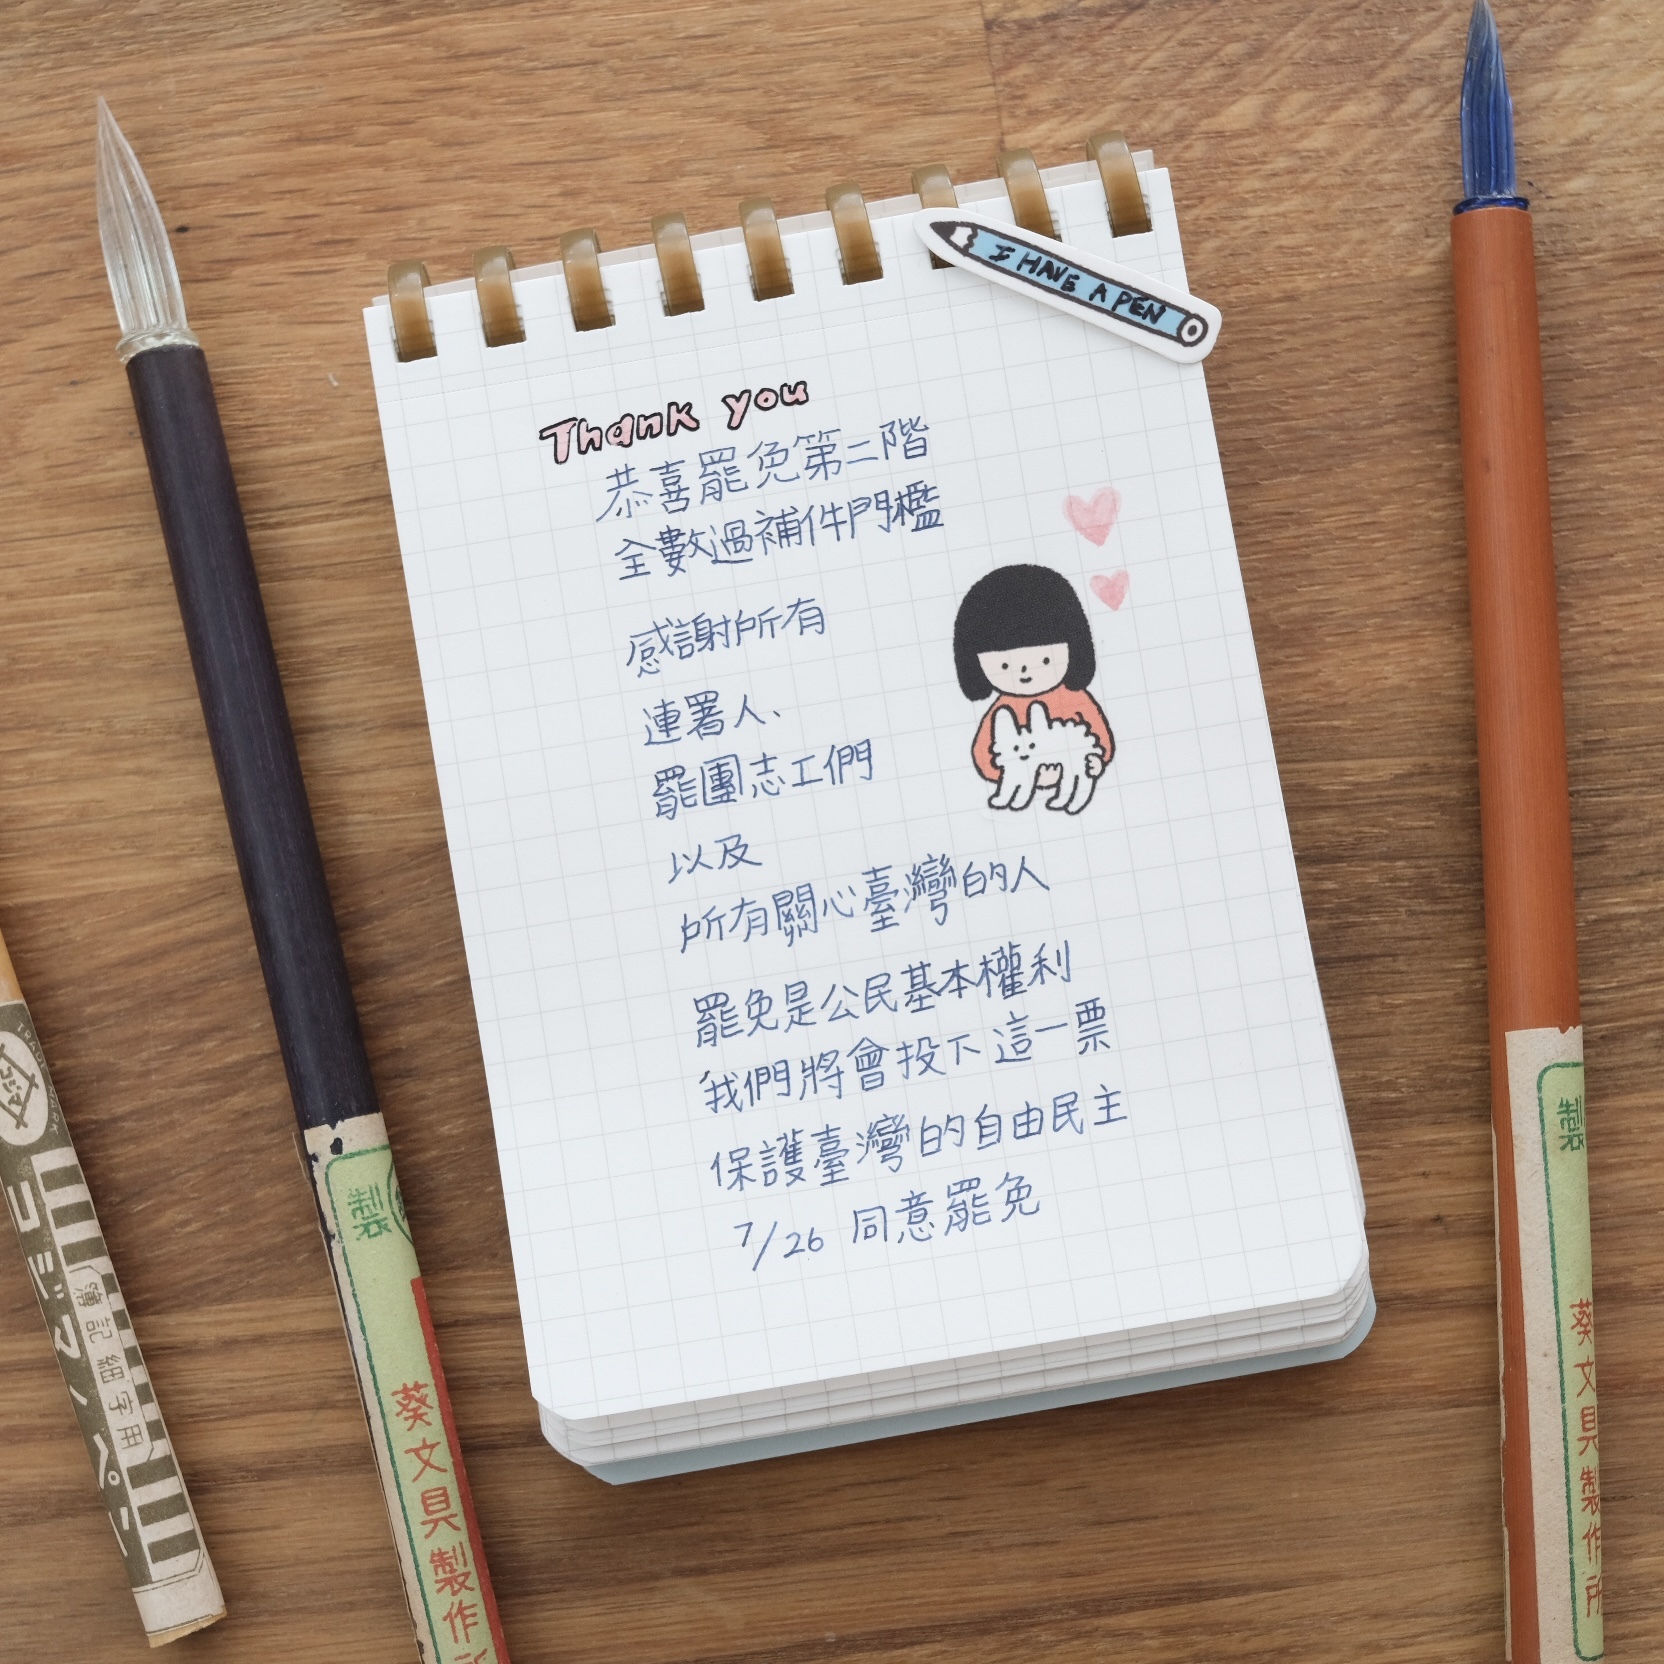 I HAVE A PEN
Thank you
恭喜罷免第二階
全數過補件門檻
感謝所有
連署人、
罷團志工們
以及
所有關心臺灣的人
罷免是公民基本權利
我們將會投下這一票
保護臺灣的自由民主
7/26 同意罷免
ラジオノペン
簿記細字用
製
葵文具製作所
製
葵文具製作所